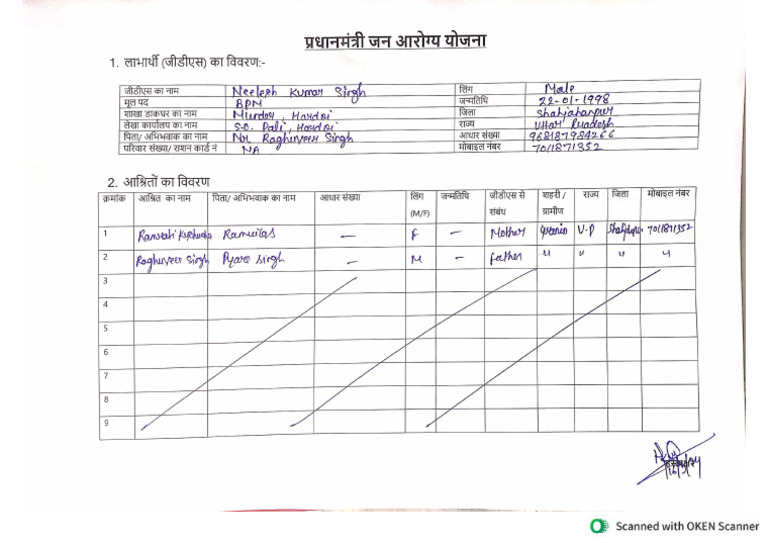 प्रधानमंत्री जन आरोग्य योजना
1. लाभार्थी (जीडीएस) का विवरण:-
जीडीएस का नाम Neelesh Kumar Singh लिंग Male
मूल पद BPM जन्मतिथि 22-01-1998
शाखा डाकघर का नाम Murdoy, Hardoi जिला Shahjahanpur
लेखा कार्यालय का नाम S.O. Pali, Hardoi राज्य Uttar Pradesh
पिता/ अभिभावक का नाम Raghuveer Singh आधार संख्या 968187984266
परिवार संख्या/ राशन कार्ड नं NA मोबाइल नंबर 7011871352
2. आश्रितों का विवरण
क्रमांक आश्रित का नाम पिता/ अभिभावक का नाम आधार संख्या लिंग (M/F) जन्मतिथि जीडीएस से संबंध शहरी / ग्रामीण राज्य जिला मोबाइल नंबर
1 — F — Mother U.P 7011871352
2 Raghuveer Singh Singh — M — Father " " " "
3
4
5
6
7
8
9
Scanned with OKEN Scanner